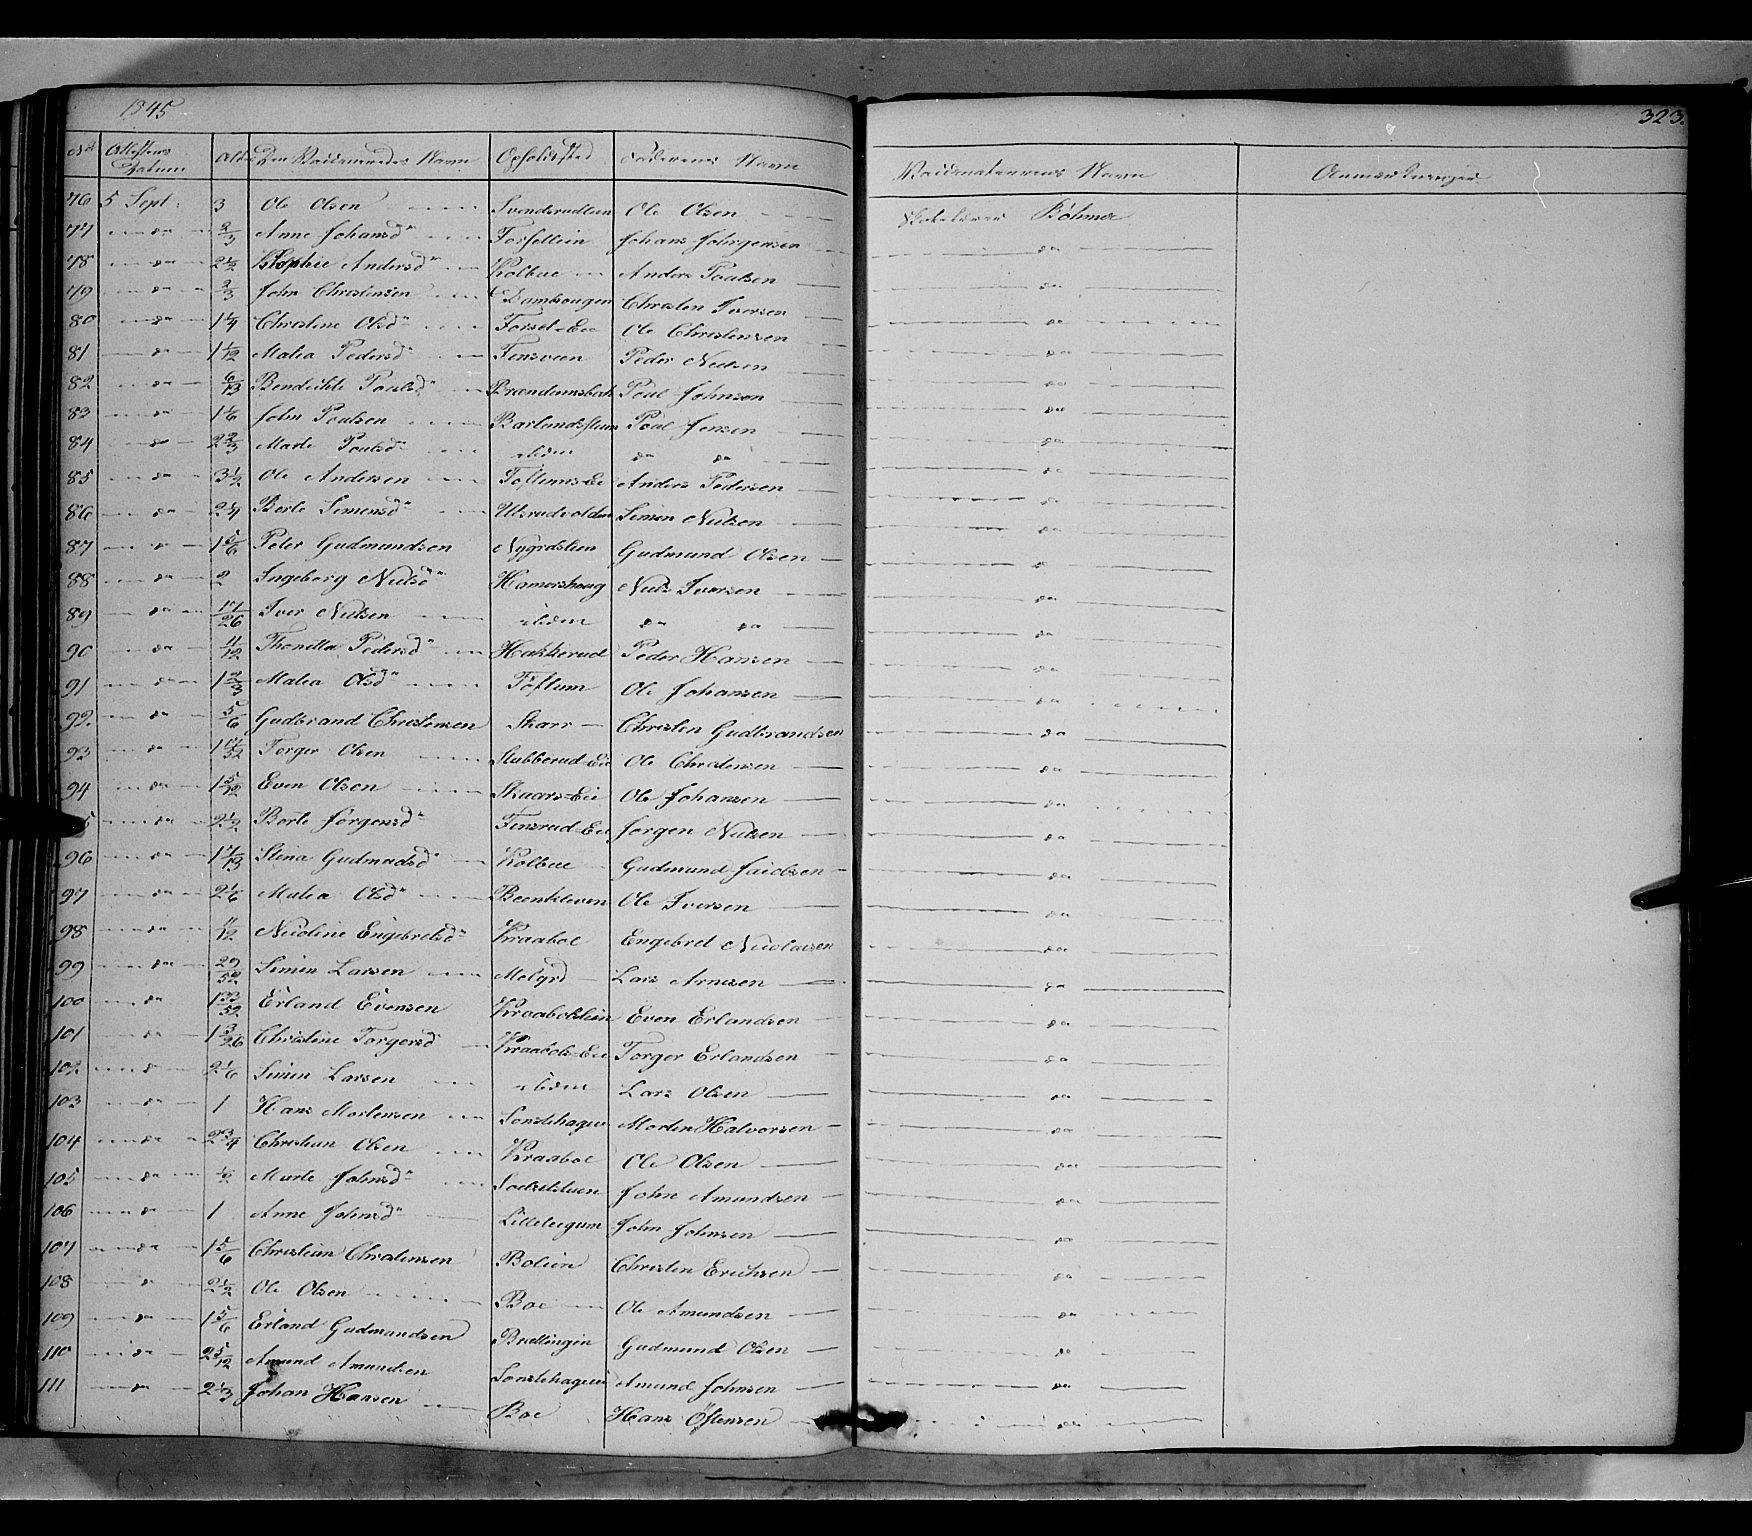 1845
323.
No Attestens Datum Alder Den Vaccineredes Navn Opholdsted Faderens Navn Vaccinateurens Navn Anmærkninger
76 5 Sept. 3 Ole Olsen Svendsrudlien Ole Olsen Skolelærer Böhmer
77 — da — 2/3 Anne Johansd. Johans Johrgensen — da —
78 — da — 2 1/2 Sophie Andersd. Kolbue Anders Poulsen — da —
79 — da — 2/3 John Christensen Damhougen Christen Iversen — da —
80 — da — 1 1/4 Christine Olsd. Forset-Eie Ole Christensen — da —
81 — da — 1 1/12 Malea Pedersd. Fensveen Peder Nielsen — da —
82 — da — 6/13 Bendichte Poulsd. Brændumsbak Poul Johnsen — da —
83 — da — 1 1/6 John Poulsen Barlundsstuen Poul Jensen — da —
84 — da — 2 2/3 Marte Poulsd. ibidem da da — da —
85 — da — 3 1/2 Ole Andersen Toftlums-Eie Anders Pedersen — da —
86 — da — 2 1/4 Berte Simensd. Ulsrudvolden Simen Nielsen — da —
87 — da — 1 5/6 Peter Gudmundsen Nygrdslien Gudmund Olsen — da —
88 — da — 2 Ingeborg Nielsd. Hamershoug Niels Iversen — da —
89 — da — 17/26 Iver Nielsen ibidem da da — da —
90 — da — 11/12 Thonette Pedersd. Hakkerud Peder Hansen — da —
91 — da — 1 2/3 Malea Olsd. Töftum Ole Johansen — da —
92. — da — 5/6 Gudbrand Christensen Skarr Christen Gudbrandsen — da —
93 — da — Torger Olsen Stubberud-Eie Ole Christensen — da —
94 — da — 1 5/12 Even Olsen Skaars-Eie Ole Johansen — da —
5 — da — 2 1/2 Berte Jörgensd. Fensrud-Eie Jörgen Nielsen — da —
96 — da — 1 7/13 Stina Gudmudsd. Kolbue Gudmund Jacobsen — da —
97 — da — 2 1/6 Malea Olsd. Beenkleven Ole Iversen — da —
98 — da — 11/12 Nicoline Engebretsd. Kraaboe Engebret Nicolaisen — da —
99 — da — 29/52 Simen Larsen Melgrd Lars Arnesen — da —
100 — da — 1 33/52 Erland Evensen Kraabolslien Even Erlandsen — da —
101 — da — 1 3/26 Christine Torgersd. Kraabols-Eie Torger Erlandsen — da —
102 — da — 2 1/6 Simen Larsen ibidem Lars Olsen — da —
103 — da — 1 Hans Mortensen Sonstehagen Morten Halvorsen — da —
104 — da — 2 3/4 Christian Olsen Kraaboe Ole Olsen — da —
105 — da — 1/2 Marte Johnsd. John Amundsen — da —
106 — da — 1 Anne Johnsd. Lillelugum John Johnsen — da —
107 — da — 1 5/6 Christian Christensen Bolien Christen Erichsen — da —
108 — da — 2 1/2 Ole Olsen Boe Ole Amundsen — da —
109 — da — 1 5/6 Erland Gudmundsen Brettingen Gudmund Olsen — da —
110 — da — 2 5/12 Amund Amundsen Sonstehagen Amund Johnsen — da —
111 — da — 2 1/3 Johan Hansen Boe Hans Östensen — da —